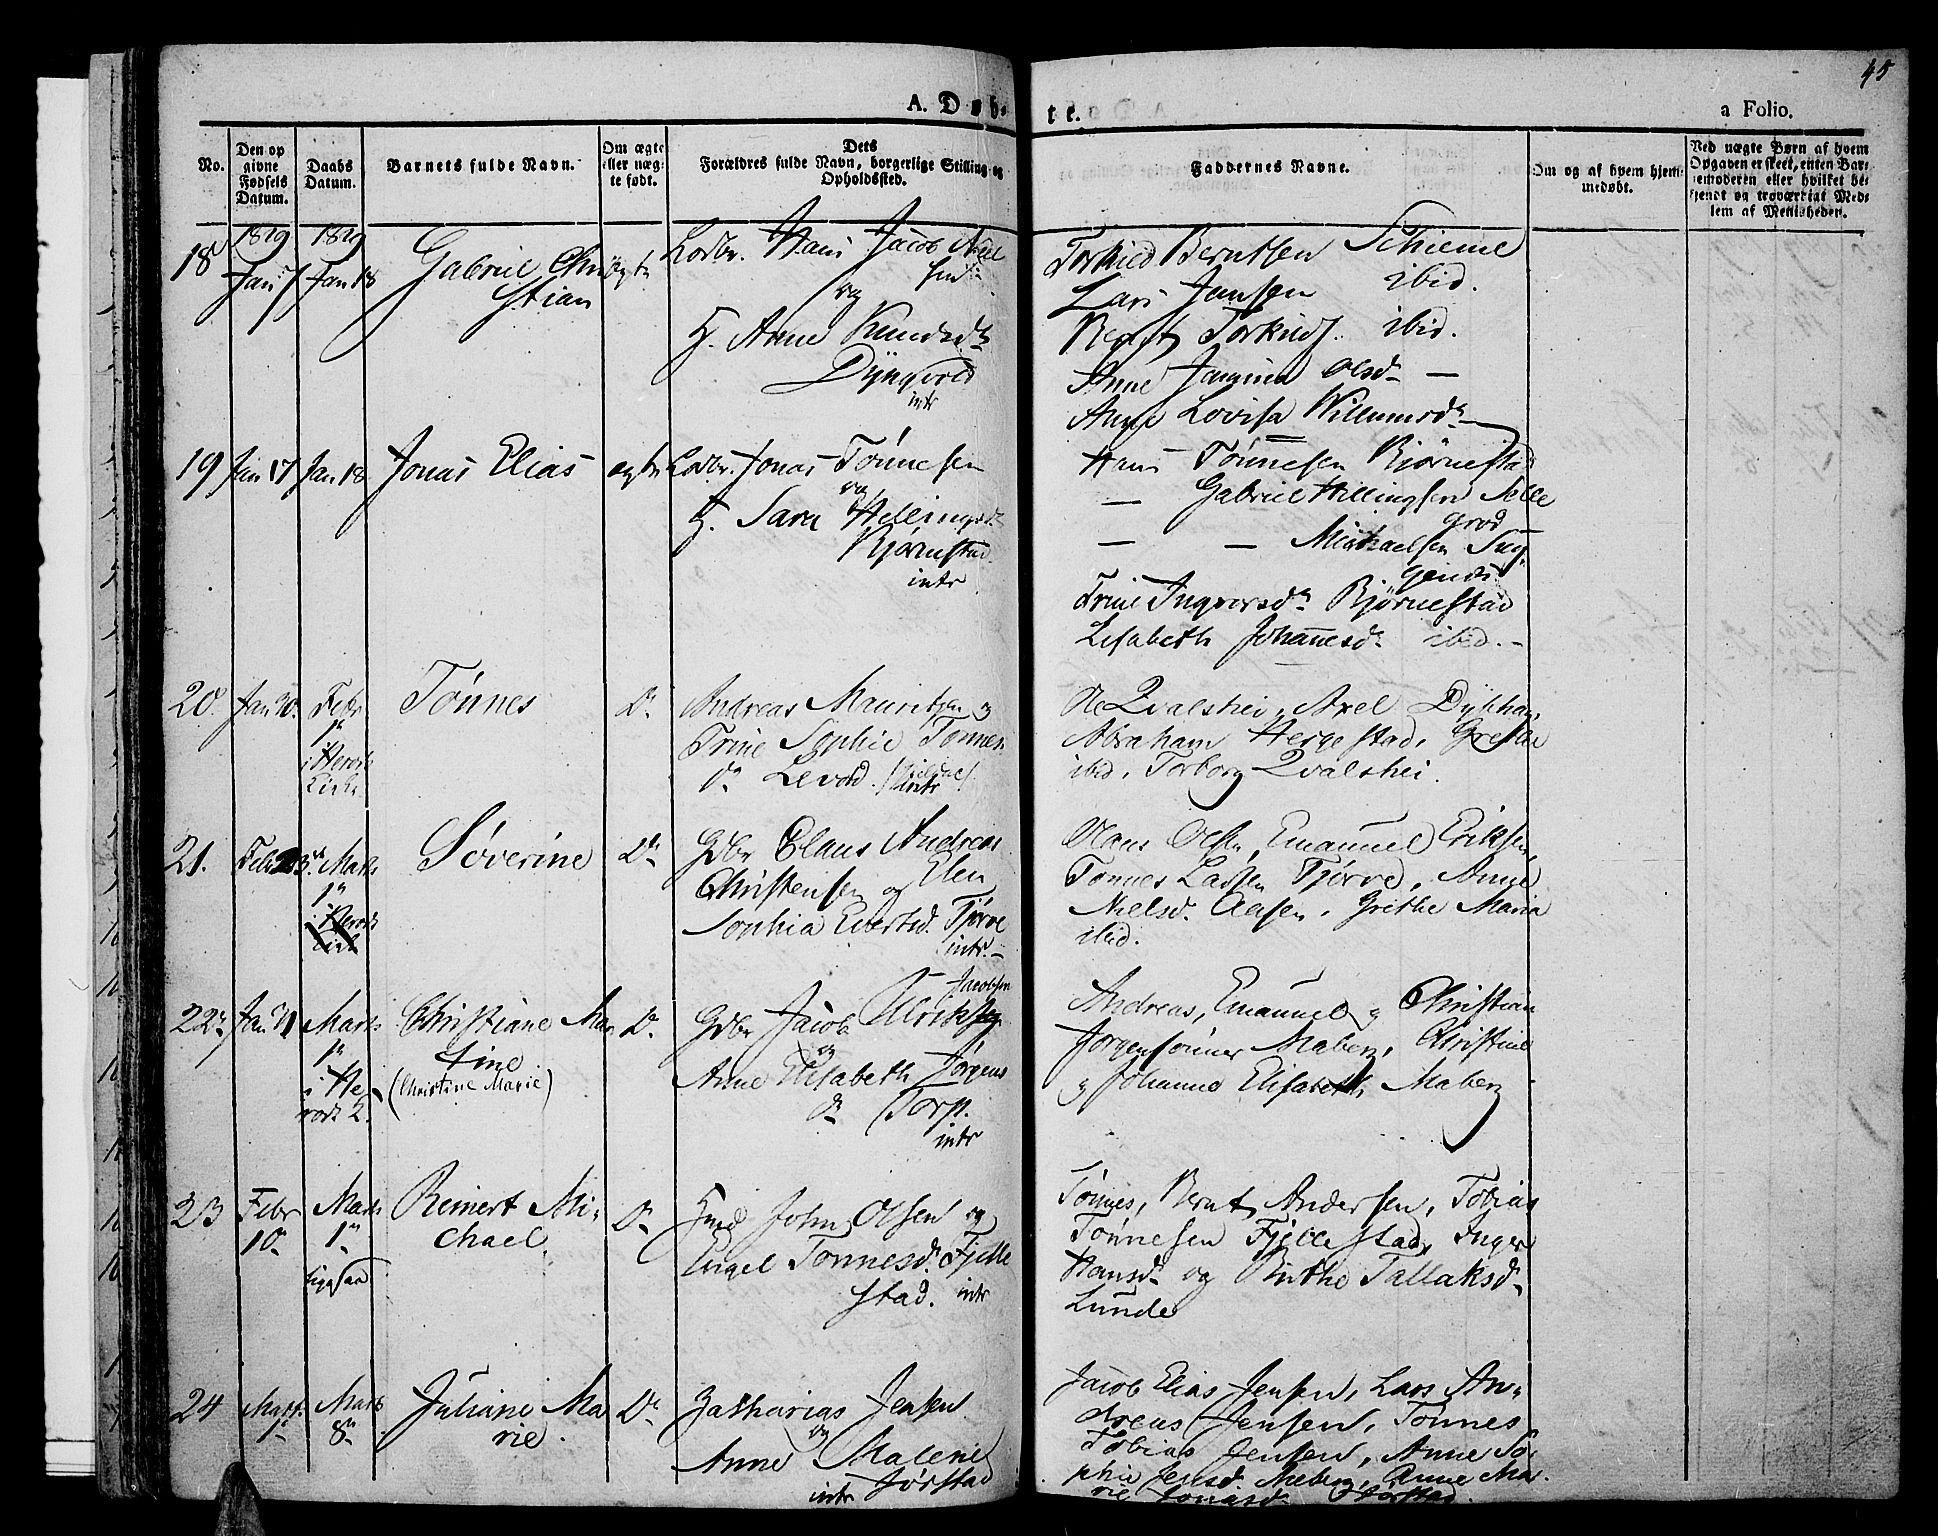 45
A. Døb-
te.
a Folio.
No.
Den op
givne
Fødsels
Datum.
Daabs
Datum.
Barnets fulde Navn.
Om ægte
eller uæg-
te født.
Dets
Forældres fulde Navn, borgerlige Stilling og
Opholdssted.
Faddernes Navne.
Om og af hvem hjem-
medøbt.
Ved uægte Børn af hvem
Opgaven er skeet, enten Bar-
nemoderen eller hvilket be-
kjendt og troværdigt Med-
lem af Menigheden.
18
1829
Jan 7
1829
Jan 18
Gabriel Chri
stian
ægte
Lodbr. Hans Jacob
og
H. Anne Knudsdr
Dyngvold
intr
Torkild Berntsen Schieme
Lars Jansen ibid.
Bernt Torkilds. ibid.
Anne Olsdr —
Anne Lovisa Willumsdr —
19
Jan 17
Jan. 18
Jonas Elias
ægte
Lodbr. Jonas Tönnesen
og
H. Sara Hellingsdr
Bjørnestad
intr
Hans Tönnesen Bjørnestad
— Gabriel Hillingsen Selle
grod
— — Michaelsen
Trine Ingversdr Bjørnestad
Lisabeth Johannesdr ibid. -
20.
Jan 30.
Febr
1n
i Herods
Kirke
Tönnes
Do
Andreas Mauritzen og
Trine Sophie Tönnes
dr Levold.
intr
Ole Qvalshei, Axel
Abraham Hergestad, Grethe
ibid, Torborg Qvalshei.
21.
Febr 23
Marts
1n
i Herods
Kirk
Søverine
Do
Gdbr Claus Andreas
Christensen og Elen
Sophia Evertsd. Tjørve
intr. -
Claus Olsen, Emanuel Eriksen,
Tönnes Larsen Tjørve, Anne
Nielsd. Aasen, Grethe Maria
ibid.
22
Jan 31
Marts
1n
i He-
rods K.
Christiane Mar
tine
(Christine Marie)
Do
Jacobsen
Gdbr Jacob Ulriks
og
Anne Elisabeth Jörgens
dr Torp.
intr
Andreas, Emanuel og Christian
Jorgensönner Maberg, Christine
og Johanne Elisabeth Maberg
23
Febr
10.
Marts
1n
ligesaa
Reinert Mi-
chael.
Do
John Olsen og
Engel Tönnesd. Fjelle
stad. intr
Tönnes, Bernt Andersen, Tobias
Tönnesen Fjellestad, Inger
Hansdr og Birthe Tallaksdr
Lunde
24
Marts
Marts
8n
Juliane Ma
rie.
Do
Zacharias Jensen
og
Anne Malene
intr Jørstad
Jacob Elias Jensen, Lars An-
dreas Jensen, Tönnes
Tobias Jensen, Anne So-
phie Jensd Maberg, Anne Ma-
rie Jonasdr Jørstad.